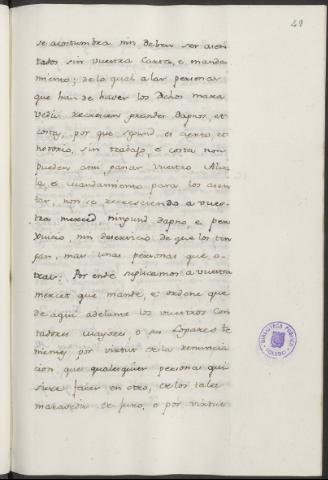 49
se acostumbra nin deben ser asen
tados sin vuestra Carta, e manda
miento; de lo qual a las personas
que han de haver los dichos mara
vedis recrescen grandes dapnos, et
costas, por que segund es cierto, et
notorio, sin trabajo, e costa non
pueden ansi ganar vuestro Alva
la, e mandamiento para los asen
tar, non se recresciendo a vues
tra merced ningund dapno, e per
juicio, nin deservicio de que los ten
gan, mas unas personas que o
tras: Por ende suplicamos a vuestra
mercet que mande, e ordene que
de aqui adelante los vuestros Con
tadores mayores o sus Logares te
nientes por virtud de la renuncia
cion, que qualesquier personas qui
siere facer en otro, de los tales
maravedis de juro, o por virtut
BIBLIOTECA PUBLICA
TOLEDO